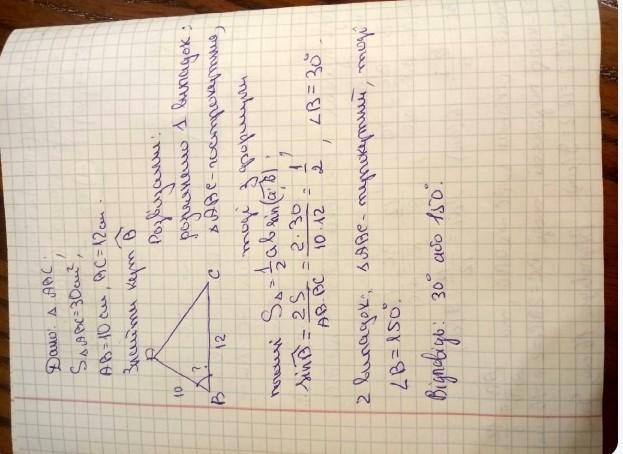 Дано: △ ABC;
S△ABC=30см²,
AB=10 см, BC=12см.
Знайти кут B̂
Розв'язання:
розглянемо 1 випадок:
△ABC-гострокутний,
тоді з формули
A
10
?
B
12
C
площі S△ = 1/2 ab sin(a,^b);
sinB̂ = 2S/AB·BC = 2·30/10·12 = 1/2, ∠B=30°.
2 випадок: △ABC-тупокутний, тоді
∠B=150°.
Відповідь: 30° або 150°.